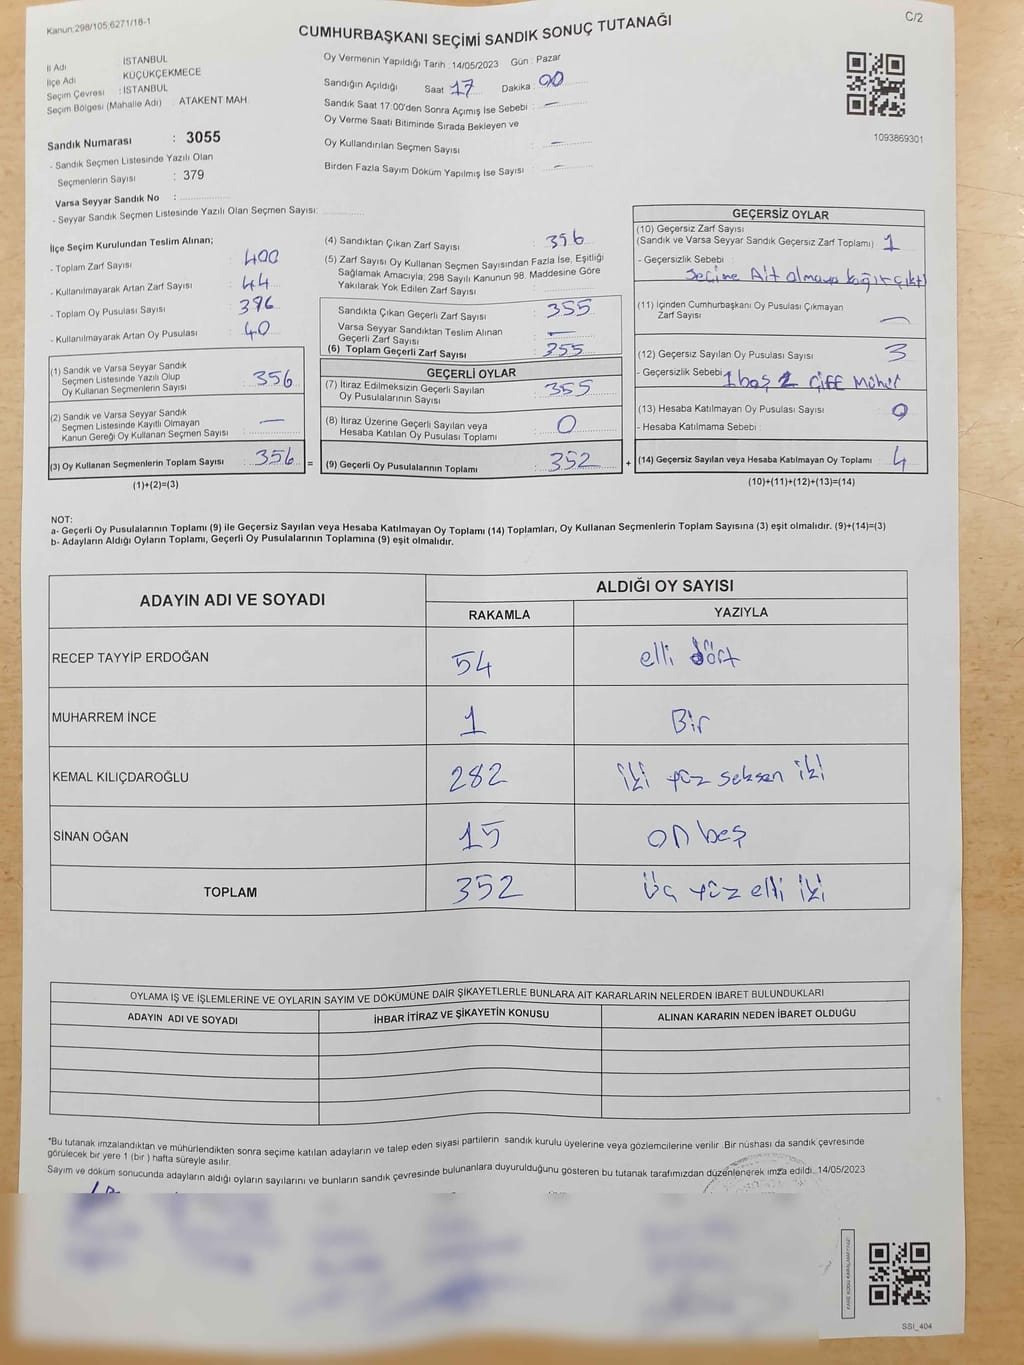 Kanun:298/105;6271/18-1
C/2
CUMHURBAŞKANI SEÇİMİ SANDIK SONUÇ TUTANAĞI
İl Adı : İSTANBUL
İlçe Adı : KÜÇÜKÇEKMECE
Seçim Çevresi : İSTANBUL
Seçim Bölgesi (Mahalle Adı) : ATAKENT MAH.
Sandık Numarası : 3055
- Sandık Seçmen Listesinde Yazılı Olan
Seçmenlerin Sayısı : 379
Varsa Seyyar Sandık No :
- Seyyar Sandık Seçmen Listesinde Yazılı Olan Seçmen Sayısı:
Oy Vermenin Yapıldığı Tarih :14/05/2023 Gün : Pazar
Sandığın Açıldığı Saat 17 Dakika : 00
Sandık Saat 17:00'den Sonra Açımış İse Sebebi : —
Oy Verme Saati Bitiminde Sırada Bekleyen ve
Oy Kullandırılan Seçmen Sayısı : —
Birden Fazla Sayım Döküm Yapılmış İse Sayısı : —
1093869301
İlçe Seçim Kurulundan Teslim Alınan;
- Toplam Zarf Sayısı : 400
- Kullanılmayarak Artan Zarf Sayısı : 44
- Toplam Oy Pusulası Sayısı : 396
- Kullanılmayarak Artan Oy Pusulası : 40
(1) Sandık ve Varsa Seyyar Sandık
Seçmen Listesinde Yazılı Olup
Oy Kullanan Seçmenlerin Sayısı : 356
(2) Sandık ve Varsa Seyyar Sandık
Seçmen Listesinde Kayıtlı Olmayan
Kanun Gereği Oy Kullanan Seçmen Sayısı : —
(3) Oy Kullanan Seçmenlerin Toplam Sayısı : 356
(1)+(2)=(3)
(4) Sandıktan Çıkan Zarf Sayısı : 356
(5) Zarf Sayısı Oy Kullanan Seçmen Sayısından Fazla İse, Eşitliği
Sağlamak Amacıyla; 298 Sayılı Kanunun 98. Maddesine Göre
Yakılarak Yok Edilen Zarf Sayısı :
Sandıkta Çıkan Geçerli Zarf Sayısı : 355
Varsa Seyyar Sandıktan Teslim Alınan
Geçerli Zarf Sayısı : —
(6) Toplam Geçerli Zarf Sayısı : 355
GEÇERLİ OYLAR
(7) İtiraz Edilmeksizin Geçerli Sayılan
Oy Pusulalarının Sayısı : 355
(8) İtiraz Üzerine Geçerli Sayılan veya
Hesaba Katılan Oy Pusulası Toplamı : 0
= (9) Geçerli Oy Pusulalarının Toplamı : 352 +
GEÇERSİZ OYLAR
(10) Geçersiz Zarf Sayısı
(Sandık ve Varsa Seyyar Sandık Geçersiz Zarf Toplamı) : 1
- Geçersizlik Sebebi :
Seçime Ait olmayan kağıt çıktı
(11) İçinden Cumhurbaşkanı Oy Pusulası Çıkmayan
Zarf Sayısı : —
(12) Geçersiz Sayılan Oy Pusulası Sayısı : 3
- Geçersizlik Sebebi : 1 boş 2 Çift Mühür
(13) Hesaba Katılmayan Oy Pusulası Sayısı : 0
- Hesaba Katılmama Sebebi :
(14) Geçersiz Sayılan veya Hesaba Katılmayan Oy Toplamı : 4
(10)+(11)+(12)+(13)=(14)
NOT:
a- Geçerli Oy Pusulalarının Toplamı (9) ile Geçersiz Sayılan veya Hesaba Katılmayan Oy Toplamı (14) Toplamları, Oy Kullanan Seçmenlerin Toplam Sayısına (3) eşit olmalıdır. (9)+(14)=(3)
b- Adayların Aldığı Oyların Toplamı, Geçerli Oy Pusulalarının Toplamına (9) eşit olmalıdır.
ADAYIN ADI VE SOYADI ALDIĞI OY SAYISI
RAKAMLA YAZIYLA
RECEP TAYYİP ERDOĞAN 54 elli dört
MUHARREM İNCE 1 Bir
KEMAL KILIÇDAROĞLU 282 iki yüz seksen iki
SİNAN OĞAN 15 on beş
TOPLAM 352 üç yüz elli iki
OYLAMA İŞ VE İŞLEMLERİNE VE OYLARIN SAYIM VE DÖKÜMÜNE DAİR ŞİKAYETLERLE BUNLARA AİT KARARLARIN NELERDEN İBARET BULUNDUKLARI
ADAYIN ADI VE SOYADI İHBAR İTİRAZ VE ŞİKAYETİN KONUSU ALINAN KARARIN NEDEN İBARET OLDUĞU
*Bu tutanak imzalandıktan ve mühürlendikten sonra seçime katılan adayların ve talep eden siyasi partilerin sandık kurulu üyelerine veya gözlemcilerine verilir .Bir nüshası da sandık çevresinde
görülecek bir yere 1 (bir ) hafta süreyle asılır.
Sayım ve döküm sonucunda adayların aldığı oyların sayılarını ve bunların sandık çevresinde bulunanlara duyurulduğunu gösteren bu tutanak tarafımızdan düzenlenerek imza edildi. 14/05/2023
KARE KODU KARALAMAYINIZ!
SSI_404